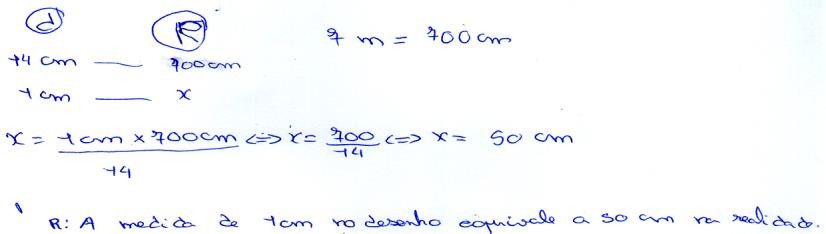 d R 7 m = 700 cm
14 cm — 700cm
1 cm — x
x = 1cm x 700cm <=> x = 700 <=> x = 50 cm
14 14
R: A medida de 1cm no desenho equivale a 50 cm na realidade.